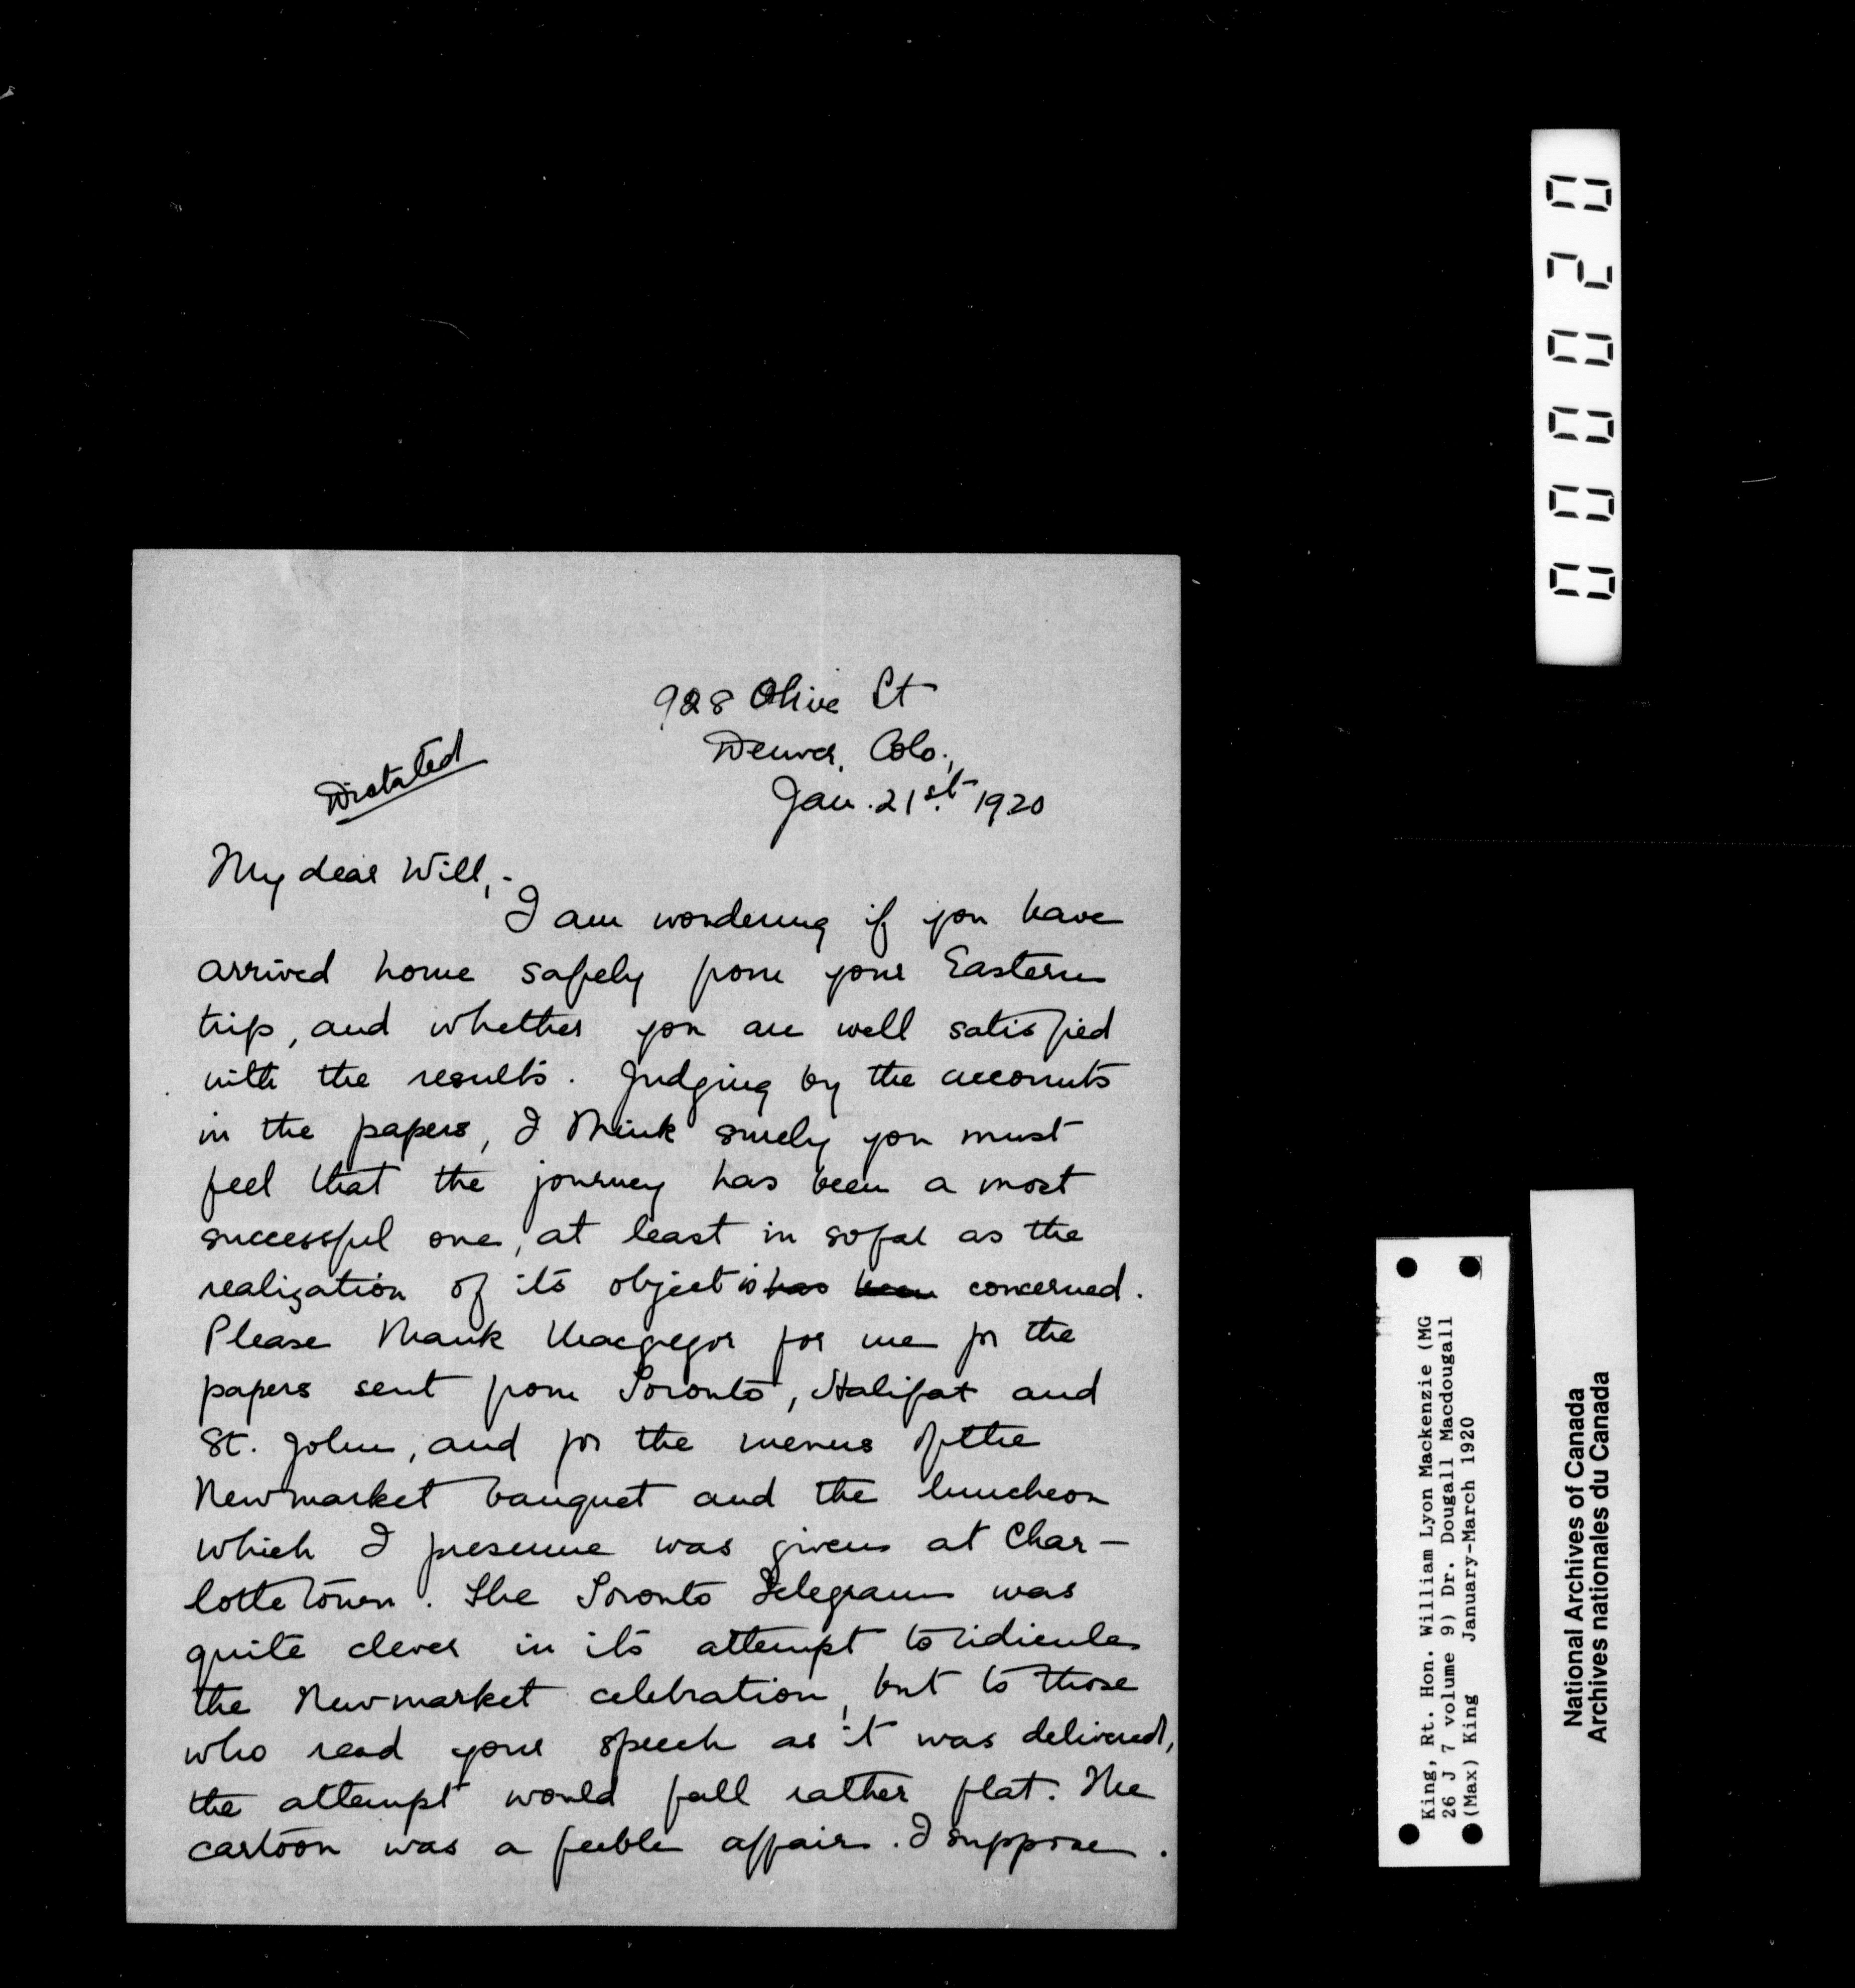 928 Olive St
Denver, Colo.,
Jan. 21st. 1920
Dictated
My dear Will,-
I am wondering if you have
arrived home safely from your Eastern
trip, and whether you are well satisfied
with the results. Judging by the accounts
in the papers, I think surely you must
feel that the journey has been a most
successful one, at least in sofar as the
realization of its object is has been concerned.
Please thank Macgregor for me for the
papers sent from Toronto, Halifax and
St. John, and for the menus of the
Newmarket banquet and the luncheon
which I presume was given at Char-
lottetown. The Toronto Telegram was
quite clever in its attempt to ridicule
the Newmarket celebration, but to those
who read your speech as it was delivered,
the attempt would fall rather flat. The
cartoon was a feeble affair. I suppose
000020
King, Rt. Hon. William Lyon Mackenzie (MG
26 J 7 volume 9) Dr. Dougall Macdougall
(Max) King January-March 1920
National Archives of Canada
Archives nationales du Canada